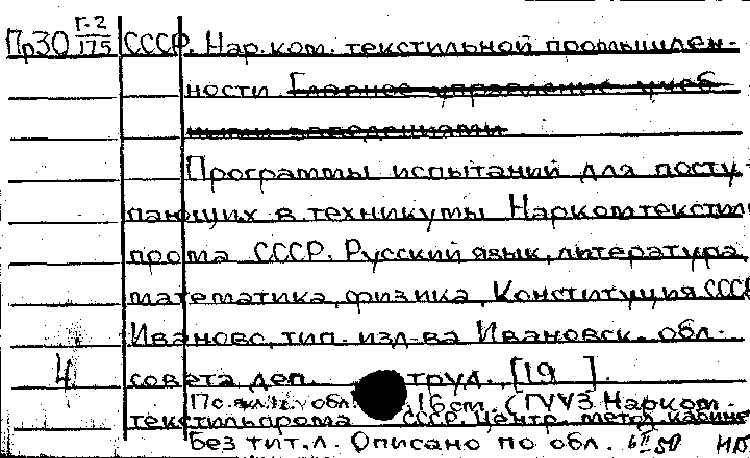 Пр30 Г-2/175 СССР. Нар. ком. текстильной промышлен-
ности. Главное управление учеб
ными заведениями
Программы испытаний для посту
пающих в техникумы Наркомтекстил
прома СССР. Русский язык, литература,
математика, физика, Конституция СССР
Иваново, тип. изд-ва Ивановск. обл.
4 совета деп. труд., [19 ].
обл. 16 ст. (ГУУЗ Нарком-
текстильпрома СССР. Центр. метод. кабине
Без тит. л. Описано по обл. 6 II 50